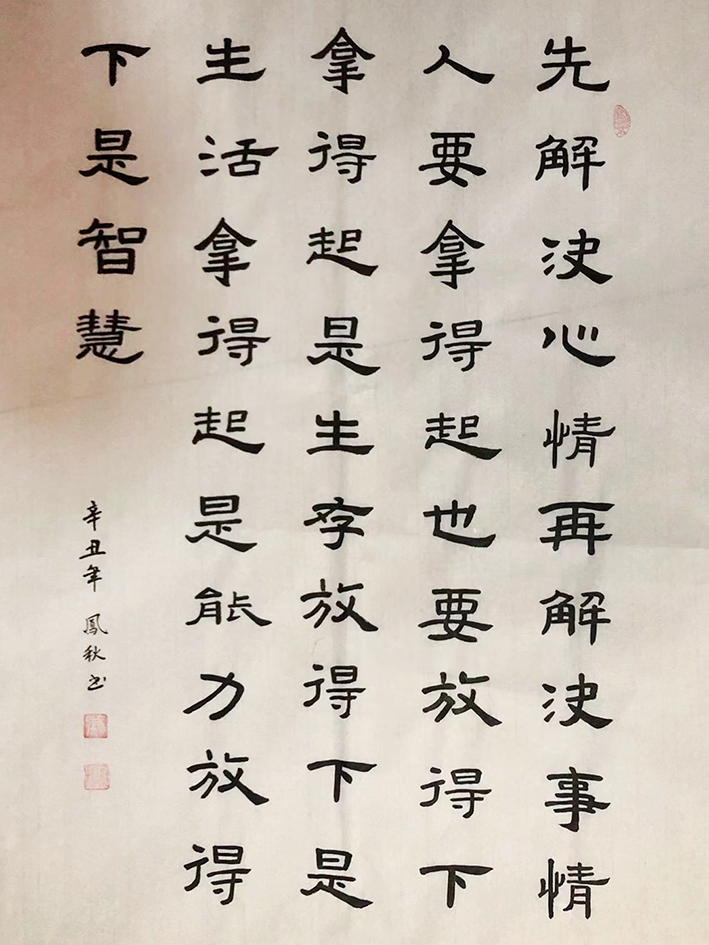 先解决心情再解决事情
人要拿得起也要放得下
拿得起是生存放得下是
生活拿得起是能力放得
下是智慧
辛丑年 鳳秋书